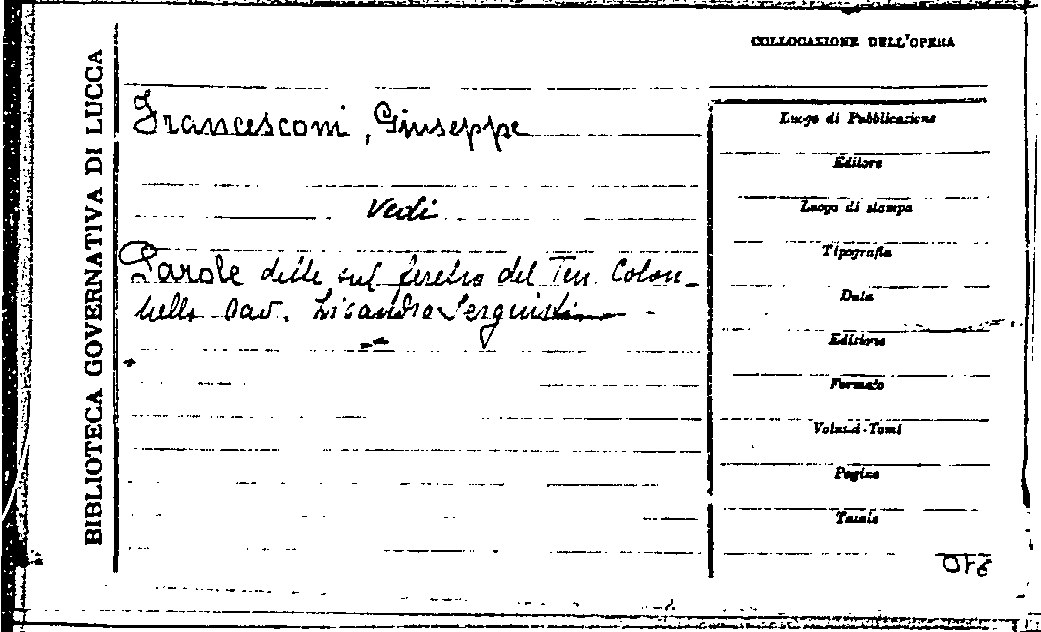 BIBLIOTECA GOVERNATIVA DI LUCCA
Francesconi, Giuseppe
Vedi
Parole dette sul feretro del Ten. Colon-
nello Cav. Lisandro
COLLOCAZIONE DELL'OPERA
Luogo di Pubblicazione
Editore
Luogo di stampa
Tipografia
Data
Edizione
Formato
Volumi-Tomi
Pagine
Tavole